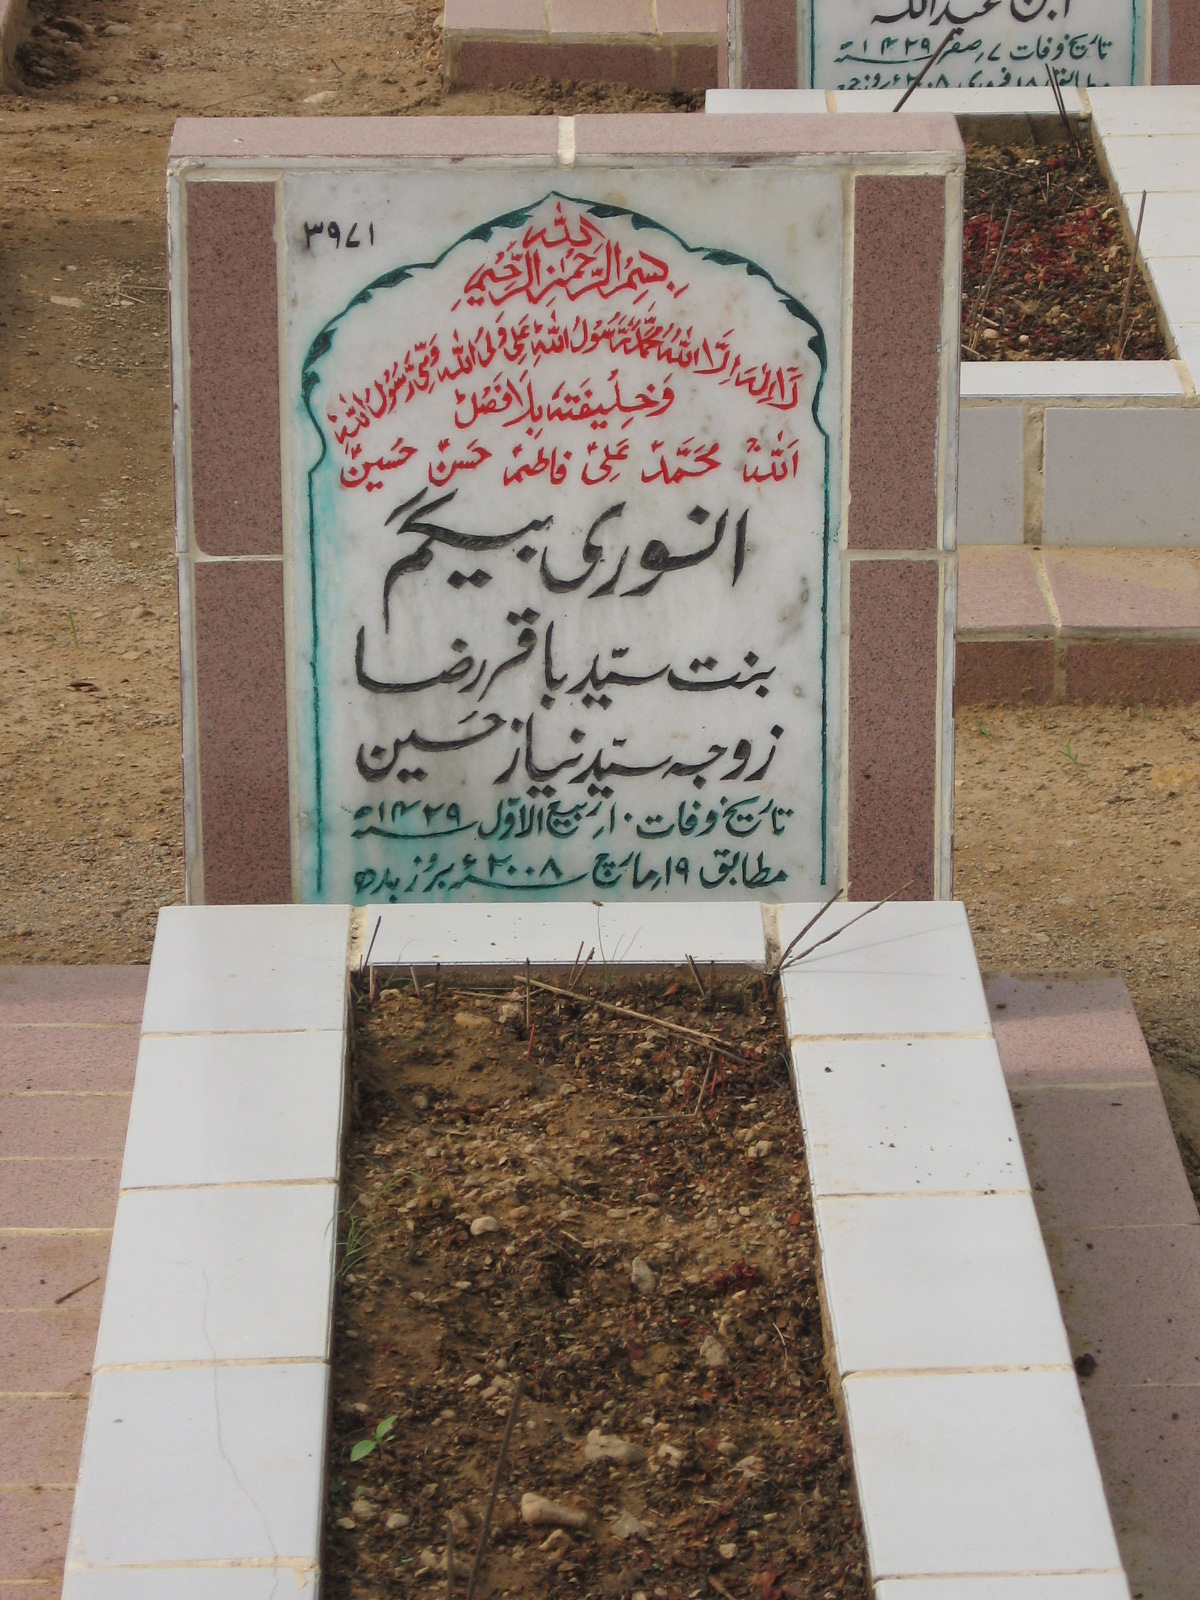 ابن عبداللہ
تاریخ وفات ۷ صفر ۱۴۲۹ھ
۳۹۷۱
بِسْمِ اللہِ الرَّحْمٰنِ الرَّحِیْمِ
لَآ اِلٰہَ اِلَّا اللہُ مُحَمَّدٌ رَّسُوْلُ اللہِ عَلِیٌّ وَلِیُّ اللہِ وَصِیُّ رَسُوْلِ اللہِ
وَخَلِیْفَتُہٗ بِلَا فَصْلٍ
اَللہُ مُحَمَّدٌ عَلِیٌ فاطِمہٌ حَسنٌ حُسینٌ
انوری بیگم
بنت سیّد باقر رضا
زوجہ سیّد نیاز حُسین
تاریخ وفات ۱۰ ربیع الاوّل ۱۴۲۹ھ
مطابق ۱۹ مارچ ۲۰۰۸ء بروز بدھ